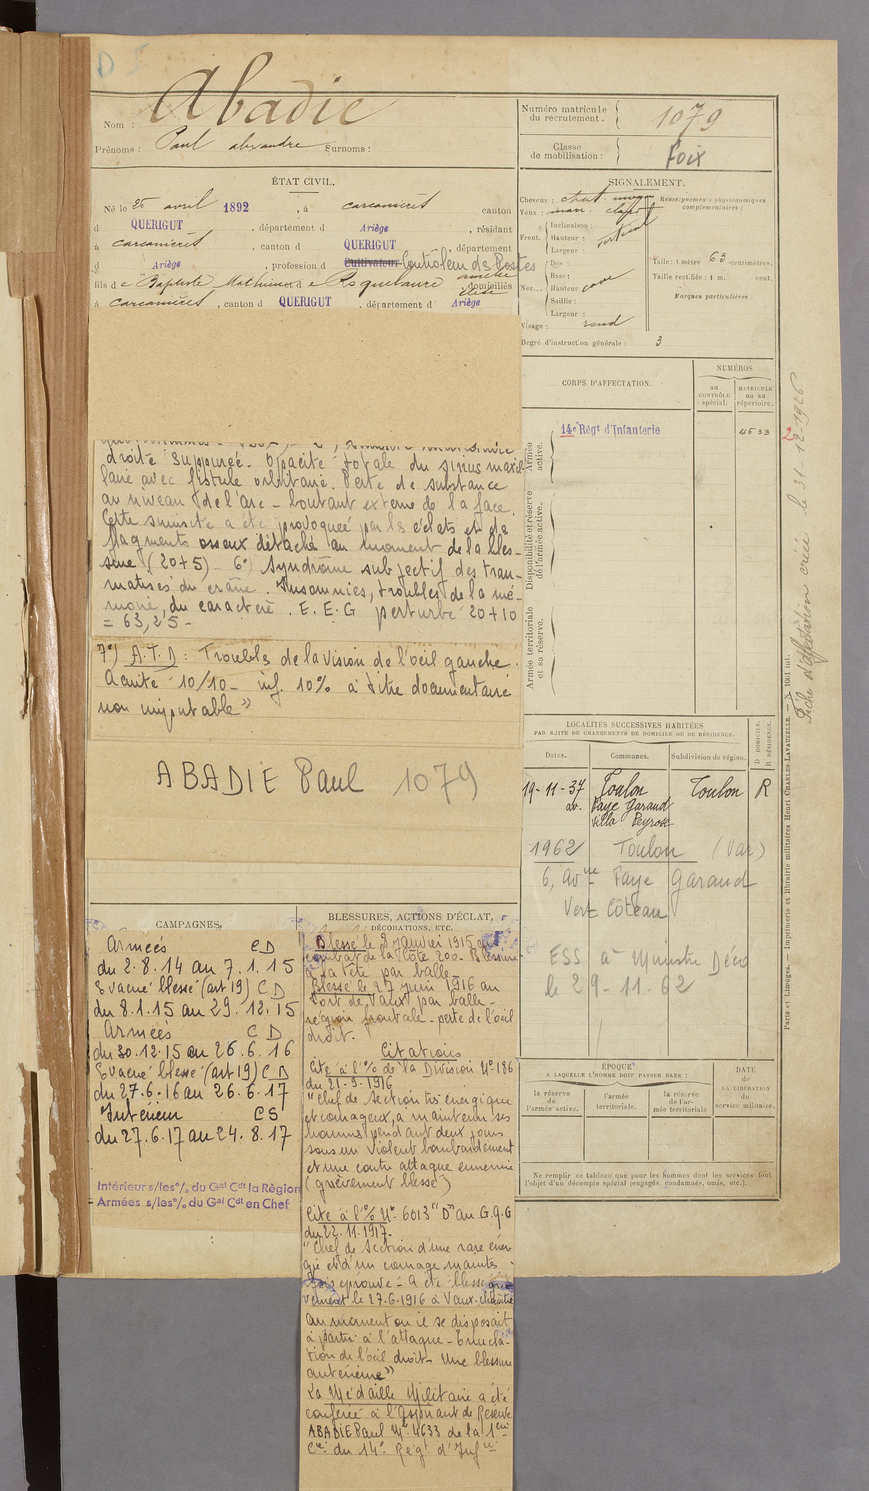 D
Nom : Abadie
Prénoms : Paul alexandre Surnoms :
ÉTAT CIVIL.
Né le 25 avril 1892, à carcanières canton
d QUERIGUT, département d Ariège, résidant
à carcanières, canton d QUERIGUT, département
d Ariège, profession d Cultivateur Contrôleur des Postes
fils d e Baptiste Mathieu et d e Roquelaure amélie élise domiciliés
à carcanières, canton d QUERIGUT, département d Ariège
droite suppurée. Opacité totale du sinus maxil-
laire avec fistule orbitaire. Perte de substance
au niveau de l'arc-boutant externe de la face.
Cette sinusite a été provoquée par les éclats et des
fragments osseux détachés au moment de la bles-
sure (20+5) - 6°) Syndrome subjectif des trau-
matisés du crâne. Insomnies, troubles de la mé-
moire, du caractère. E.E.G perturbé 20+10
= 63,25 -
7°) A.T.D : Troubles de la vision de l'œil gauche.
Acuité 10/10 - inf. 10% à titre documentaire
non imputable"
ABADIE Paul 1079
CAMPAGNES.
Armées CD
du 2.8.14 au 7.1.15
Evacué blessé (art 19) CD
du 8.1.15 au 29.12.15
Armées CD
du 30.12.15 au 26.6.16
Evacué blessé (art 19) CD
du 27.6.16 au 26.6.17
Intérieur CS
du 27.6.17 au 24.8.17
Intérieur s/les % du Gal Cdt la Région
- Armées s/les % du Gal Cdt en Chef
BLESSURES, ACTIONS D'ÉCLAT,
DÉCORATIONS, ETC.
Blessé le 8 janvier 1915 au
combat de la Côte 200 - Blessure
à la tête par balle -
Blessé le 27 juin 1916 au
Fort de Vaux par balle -
région frontale - perte de l'œil
droit.
Citations
Cité à l'% de la Division N° 186
du 21.9.1916
"Chef de Section très énergique
et courageux, a maintenu ses
hommes pendant deux jours
sous un violent bombardement
et une contre attaque ennemie
(grièvement blessé)
Cité à l'% N° 6013 "D" au G.Q.G
du 22.11.1917.
"Chef de Section d'une rare éner-
gie et d'un courage maintes
fois éprouvé - A été blessé griè-
vement le 27.6.1916 à Vaux-chapitre
au moment où il se disposait
à partir à l'attaque - Enucléa-
tion de l'œil droit - Une blessure
antérieure"
La Médaille Militaire a été
conférée à l'Aspirant de Réserve
ABADIE Paul Mle 4633 de la 1ère
Cie du 14e Régt d'Infie
Numéro matricule
du recrutement : 1079
Classe
de mobilisation : Foix
SIGNALEMENT.
Cheveux : chat. moyen
Yeux : marr. clair
Front. Inclinaison :
Hauteur : vertical
Largeur :
Nez... Dos :
Base :
Hauteur cave
Saillie :
Largeur :
Visage : rond
Degré d'instruction générale : 3
Renseignements physionomiques
complémentaires :
Taille : 1 mètre 63 centimètres.
Taille rectifiée : 1 m. cent.
Marques particulières :
CORPS D'AFFECTATION.
NUMÉROS
AU CONTRÔLE spécial.
MATRICULE ou au répertoire.
Armée active.
14e Régt d'Infanterie
4633
2
Disponibilité et réserve
de l'armée active.
Armée territoriale
et sa réserve.
LOCALITÉS SUCCESSIVES HABITÉES
PAR SUITE DE CHANGEMENTS DE DOMICILE OU DE RÉSIDENCE.
Dates. Communes. Subdivision de région.
D DOMICILE.
R RÉSIDENCE.
19-11-37 Toulon Toulon R
av. Faye Garaud
villa Peyrose
1962 Toulon (Var)
6, Avue Faye Garaud
Vert Côteau
ESS à Ministre Déco
le 29-11-62
ÉPOQUE
A LAQUELLE L'HOMME DOIT PASSER DANS :
la réserve de l'armée active.
l'armée territoriale.
la réserve de l'armée territoriale
DATE
de LA LIBÉRATION du service militaire.
Ne remplir ce tableau que pour les hommes dont les services font
l'objet d'un décompte spécial (engagés, condamnés, omis, etc.).
Fiche d'affectation créée le 31-12-1926
Paris et Limoges. — Imprimerie et librairie militaires Henri CHARLES-LAVAUZELLE.